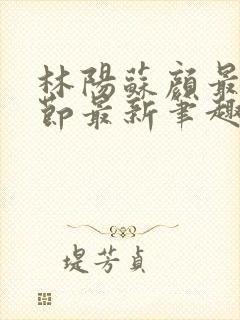 林陽蘇顏最
節最新筆趣
堤芳貞